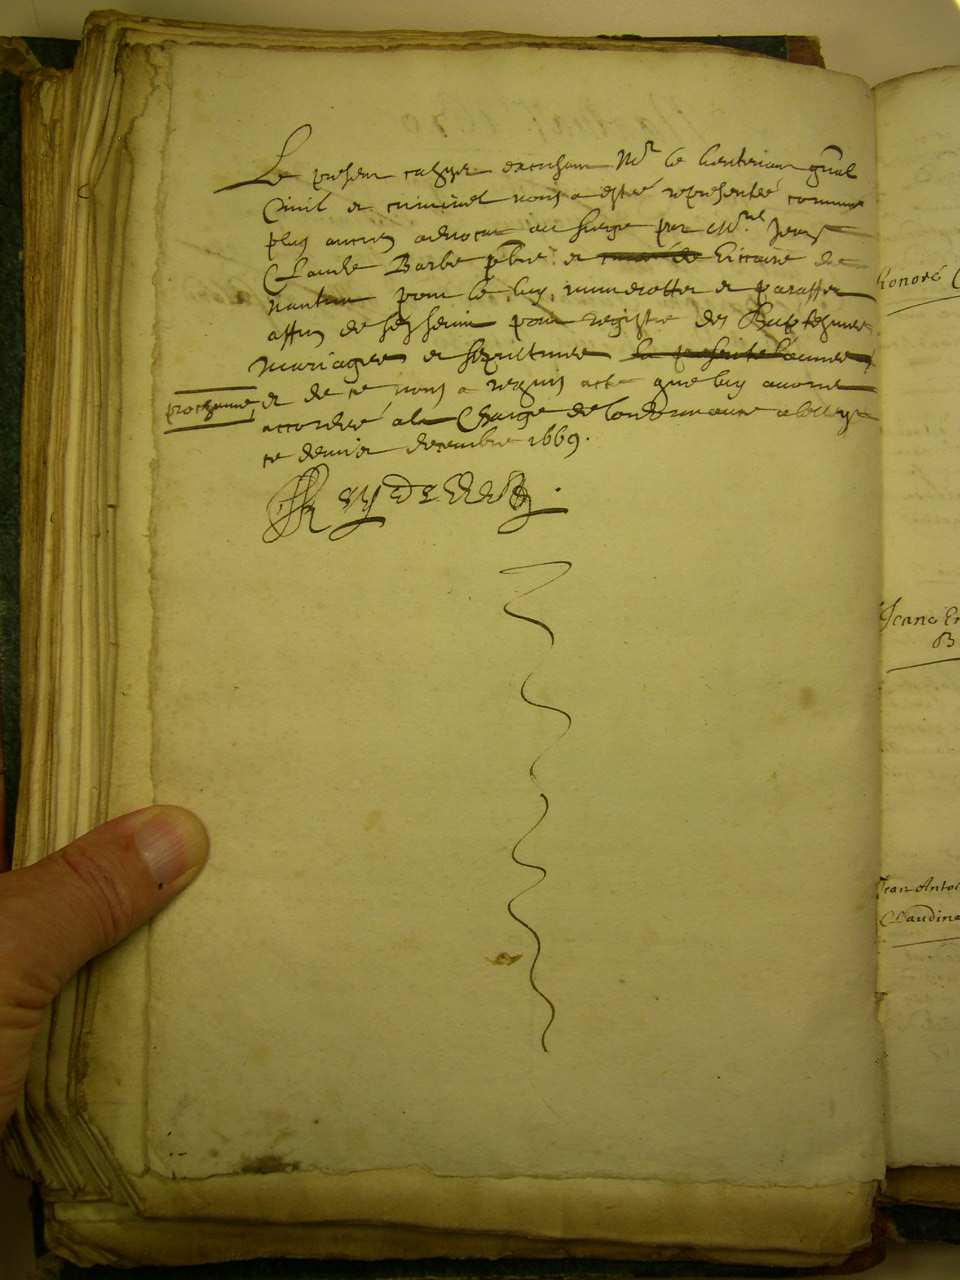 Le present cahyer excusant Mr le lieutenant gnal
Civil et criminel nous a esté representé comme
plus ancien advocat au siege par Mre Jean
Claude Barbe pbre et vicaire de
nantua pour le luy numerotter et paraffer
affin de servir pour registre des Baptesmes
mariages et sepultures la presente année
prochaine et de ce nous a requis acte que luy avons
accordé a la Charge de l'ordonnance a belley
ce dernier decembre 1669.
Honoré
Jeane
B
Jean Antoi
Claudine